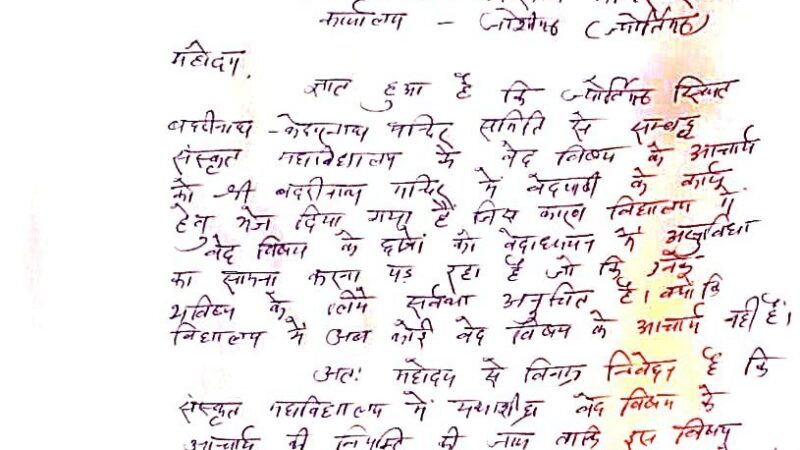 कार्यालय - जोशीमठ (ज्योर्तिमठ)
महोदय,
ज्ञात हुआ है कि ज्योर्तिमठ स्थित
बदरीनाथ - केदारनाथ मन्दिर समिति से सम्बद्ध
संस्कृत महाविद्यालय के वेद विषय के आचार्य
को श्री बदरीनाथ मन्दिर में वेदपाठी के कार्य
हेतु भेज दिया गया है जिस कारण विद्यालय में
वेद विषय के छात्रों को वेदाध्ययन में असुविधा
का सामना करना पड़ रहा है जो कि उनके
भविष्य के लिये सर्वथा अनुचित है। क्यों कि
विद्यालय में अब कोई वेद विषय के आचार्य नहीं है।
अतः महोदय से विनम्र निवेदन है कि
संस्कृत महाविद्यालय में यथाशीघ्र वेद विषय के
आचार्य की नियुक्ति की जाय ताकि इस विषय